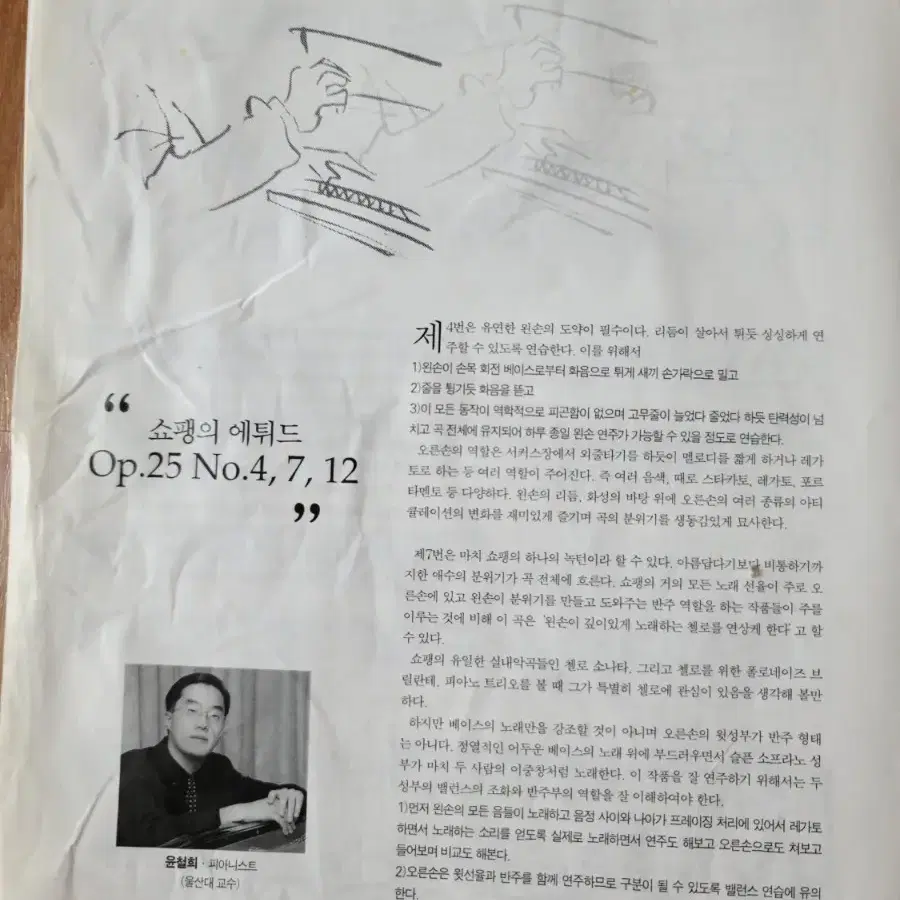 “
쇼팽의 에튀드
Op.25 No.4, 7, 12
”
윤철희 · 피아니스트
(울산대 교수)
제4번은 유연한 왼손의 도약이 필수이다. 리듬이 살아서 튀듯 싱싱하게 연
주할 수 있도록 연습한다. 이를 위해서
1)왼손이 손목 회전 베이스로부터 화음으로 튀게 새끼 손가락으로 밀고
2)줄을 튕기듯 화음을 뜯고
3)이 모든 동작이 역학적으로 피곤함이 없으며 고무줄이 늘었다 줄었다 하듯 탄력성이 넘
치고 곡 전체에 유지되어 하루 종일 왼손 연주가 가능할 수 있을 정도로 연습한다.
오른손의 역할은 서커스장에서 외줄타기를 하듯이 멜로디를 짧게 하거나 레가
토로 하는 등 여러 역할이 주어진다. 즉 여러 음색, 때로 스타카토, 레가토, 포르
타멘토 등 다양하다. 왼손의 리듬, 화성의 바탕 위에 오른손의 여러 종류의 아티
큘레이션의 변화를 재미있게 즐기며 곡의 분위기를 생동감있게 묘사한다.
제7번은 마치 쇼팽의 하나의 녹턴이라 할 수 있다. 아름답다기보다 비통하기까
지한 애수의 분위기가 곡 전체에 흐른다. 쇼팽의 거의 모든 노래 선율이 주로 오
른손에 있고 왼손이 분위기를 만들고 도와주는 반주 역할을 하는 작품들이 주를
이루는 것에 비해 이 곡은 '왼손이 깊이있게 노래하는 첼로를 연상케 한다'고 할
수 있다.
쇼팽의 유일한 실내악곡들인 첼로 소나타, 그리고 첼로를 위한 폴로네이즈 브
릴란테, 피아노 트리오를 볼 때 그가 특별히 첼로에 관심이 있음을 생각해 볼만
하다.
하지만 베이스의 노래만을 강조할 것이 아니며 오른손의 윗성부가 반주 형태
는 아니다. 정열적인 어두운 베이스의 노래 위에 부드러우면서 슬픈 소프라노 성
부가 마치 두 사람의 이중창처럼 노래한다. 이 작품을 잘 연주하기 위해서는 두
성부의 밸런스의 조화와 반주부의 역할을 잘 이해하여야 한다.
1)먼저 왼손의 모든 음들이 노래하고 음정 사이와 나아가 프레이징 처리에 있어서 레가토
하면서 노래하는 소리를 얻도록 실제로 노래하면서 연주도 해보고 오른손으로도 쳐보고
들어보며 비교도 해본다.
2)오른손은 윗선율과 반주를 함께 연주하므로 구분이 될 수 있도록 밸런스 연습에 유의
한다.